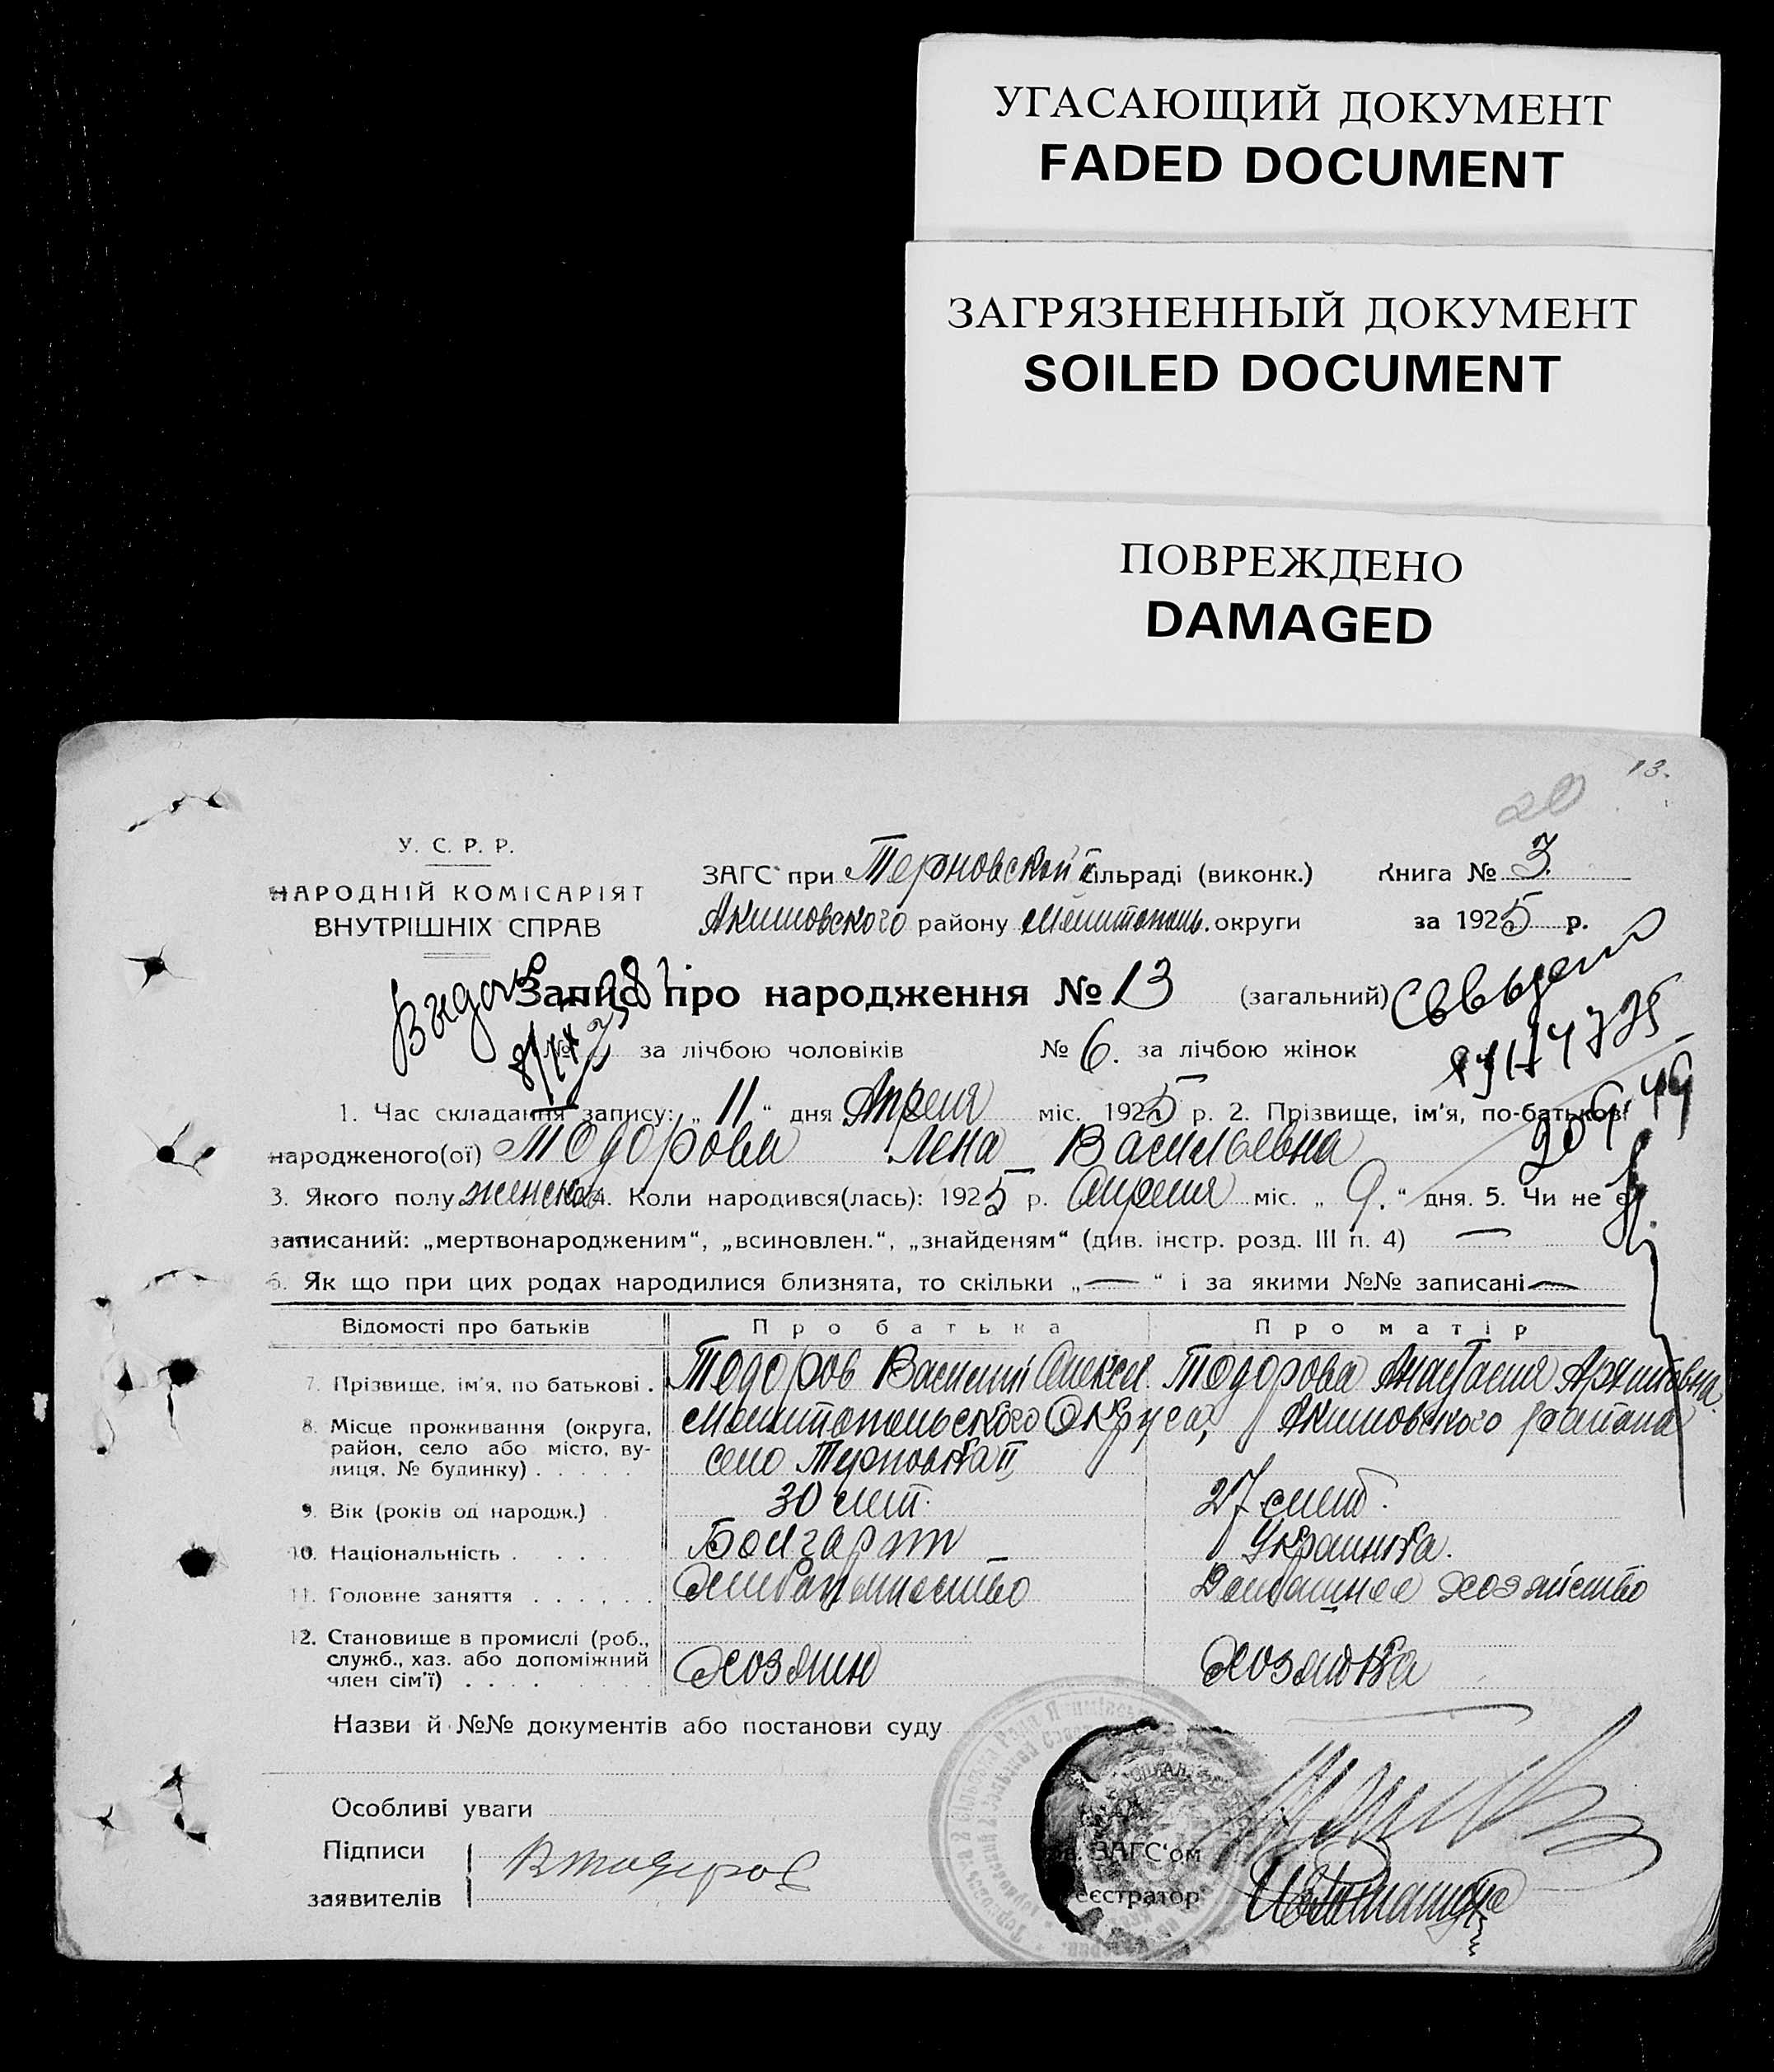 УГАСАЮЩИЙ ДОКУМЕНТ
FADED DOCUMENT
ЗАГРЯЗНЕННЫЙ ДОКУМЕНТ
SOILED DOCUMENT
ПОВРЕЖДЕНО
DAMAGED
13.
20
У. С. Р. Р.
НАРОДНІЙ КОМІСАРІЯТ
ВНУТРІШНІХ СПРАВ
ЗАГС при Терновской II сільраді (виконк.) Книга № 3.
Акимовского району Мелитополь. округи за 1925 р.
Выдано
Запис про народження № 13 (загальний)
№ за лічбою чоловіків № 6. за лічбою жінок
1. Час складання запису: „ 11 “ дня Апреля міс. 1925 р. 2. Прізвище, ім'я, по-батькові
народженого(ої) Тодорова Лена Васильевна
3. Якого полу женска 4. Коли народився(лась): 1925 р. Апреля міс. „ 9. “ дня. 5. Чи не є
записаний: „мертвонародженим“, „всиновлен.“, „знайденям“ (див. інстр. розд. III п. 4) —
6. Як що при цих родах народилися близнята, то скільки „ — “ і за якими №№ записані —
Відомості про батьків Про батька Про матір
7. Прізвище, ім'я, по батькові . Тодоров Василий Алексе. Тодорова Анастасия Архиповна.
8. Місце проживання (округа, район, село або місто, вулиця, № будинку) . . . . . Мелитопольского Округа, Акимовского района
село Терновка II
9. Вік (років од народж.) 30 лет. 27 лет.
10. Національність . . . . Болгарин Украинка.
11. Головне заняття . . . . . . Хлебопашество Домашнее хозяйство
12. Становище в промислі (роб.,
служб., хаз. або допоміжний
член сім'ї) . . . . Хозяин Хозяйка
Назви й №№ документів або постанови суду
Особливі уваги
Підписи
заявителів В Тодоров
ЗАГС'ом
еєстратор